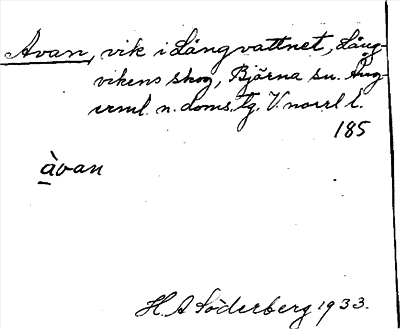 Avan, vik i Långvattnet, Lång-
vikens skog, Björna sn. Ång-
erml. n. doms. tg. V. norrl l.
185
àvan
H. A Söderberg 1933.